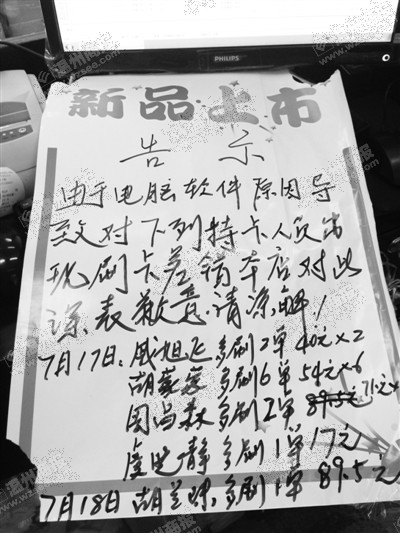 PHILIPS
新品上市
告示
由于电脑软件原因导
致对下列持卡人员出
现刷卡差错本店对此
深表歉意.请凉解!
7月17日:戚旭飞多刷2单 40元×2
胡 多刷6单 54元×6
周尚 多刷2单 71元×
虞 静多刷1单 17元
7月18日 胡兰 多刷1单 89.5元
温州商报